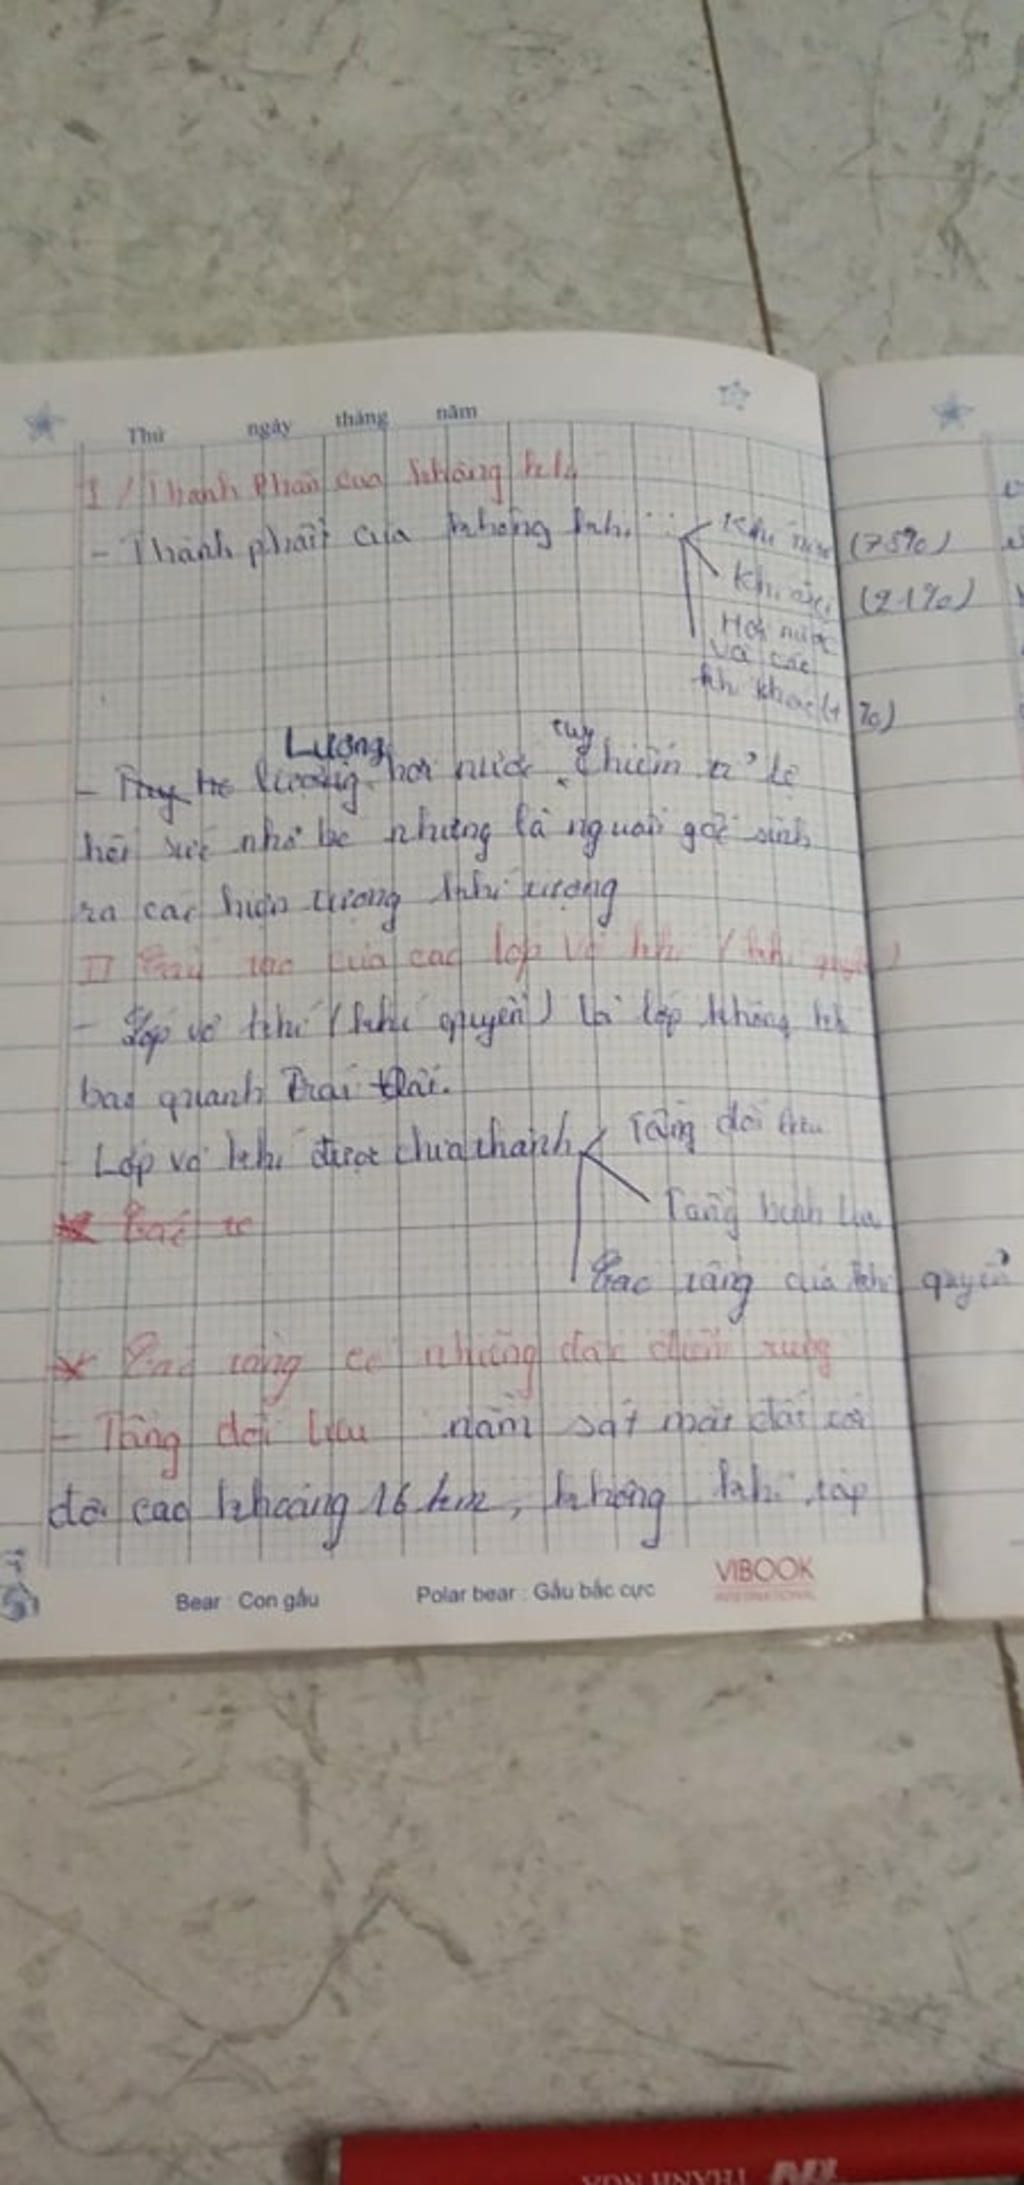 Thứ ngày tháng năm
I / Thành Phần của không khí
- Thành phần của không khí : Khí nitơ (78%)
Khí ôxi (21%)
Hơi nước
và các
khí khác (1%)
Lượng tuy
- Tuy lượng hơi nước chiếm tỉ lệ
hết sức nhỏ bé nhưng là nguồn gốc sinh
ra các hiện tượng khí tượng
II Cấu tạo của các lớp vỏ khí (khí quyển)
- Lớp vỏ khí (khí quyển) là lớp không khí
bao quanh Trái Đất.
- Lớp vỏ khí được chia thành Tầng đối lưu
Tầng bình lưu
Các tầng của khí quyển
* Các tầng có những đặc điểm riêng
- Tầng đối lưu nằm sát mặt đất có
độ cao khoảng 16 km, không khí tập
Bear : Con gấu Polar bear : Gấu bắc cực VIBOOK
INTERNATIONAL